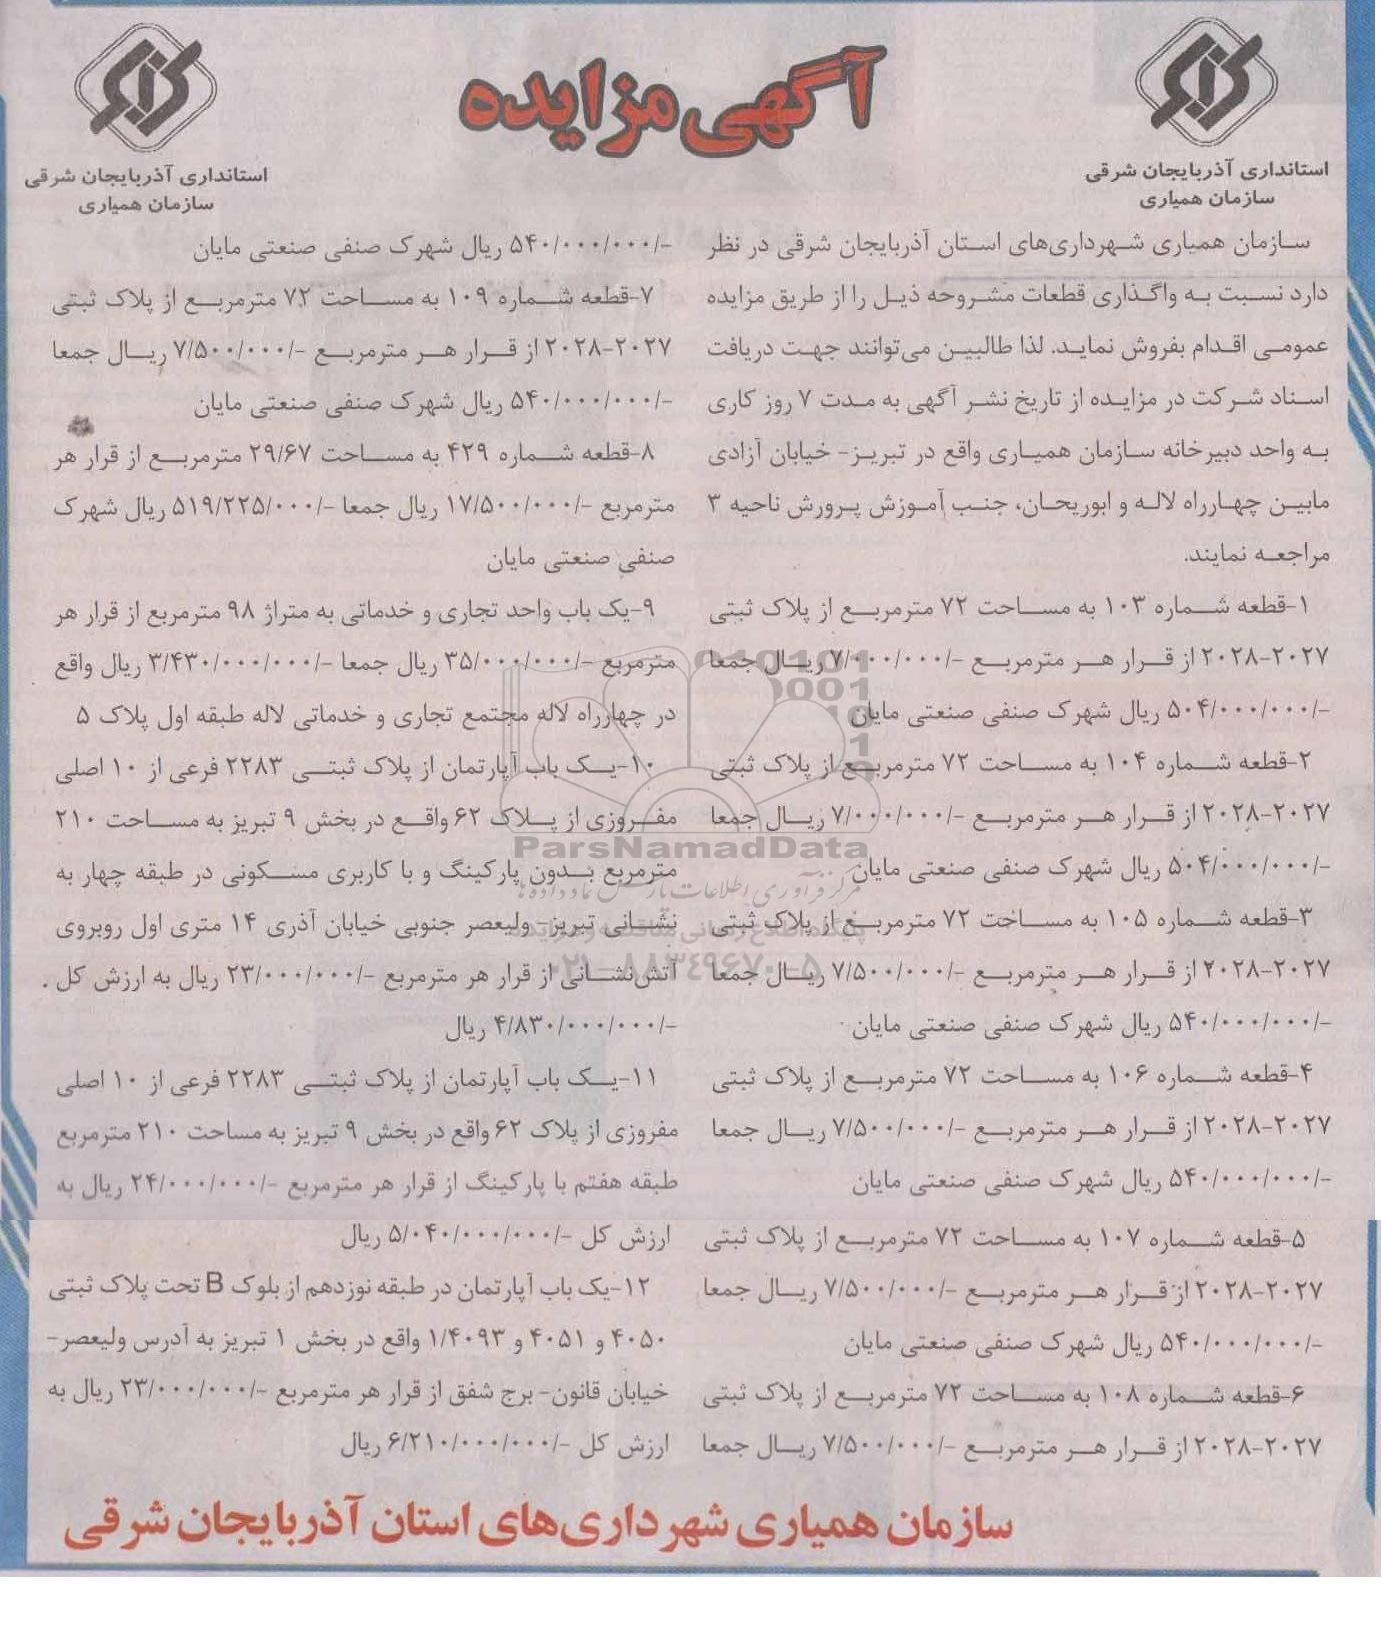 آگهی مزایده
استانداری آذربایجان شرقی
سازمان همیاری
استانداری آذربایجان شرقی
سازمان همیاری
سازمان همیاری شهرداری‌های استان آذربایجان شرقی در نظر
دارد نسبت به واگذاری قطعات مشروحه ذیل را از طریق مزایده
عمومی اقدام بفروش نماید. لذا طالبین می‌توانند جهت دریافت
اسناد شرکت در مزایده از تاریخ نشر آگهی به مدت ۷ روز کاری
به واحد دبیرخانه سازمان همیاری واقع در تبریز- خیابان آزادی
مابین چهارراه لاله و ابوریحان، جنب آموزش پرورش ناحیه ۳
مراجعه نمایند.
۱-قطعه شماره ۱۰۳ به مساحت ۷۲ مترمربع از پلاک ثبتی
۲۰۲۷-۲۰۲۸ از قرار هر مترمربع -/۷/۰۰۰/۰۰۰ ریال جمعا
-/۵۰۴/۰۰۰/۰۰۰ ریال شهرک صنفی صنعتی مایان
۲-قطعه شماره ۱۰۴ به مساحت ۷۲ مترمربع از پلاک ثبتی
۲۰۲۷-۲۰۲۸ از قرار هر مترمربع -/۷/۰۰۰/۰۰۰ ریال جمعا
-/۵۰۴/۰۰۰/۰۰۰ ریال شهرک صنفی صنعتی مایان
۳-قطعه شماره ۱۰۵ به مساحت ۷۲ مترمربع از پلاک ثبتی
۲۰۲۷-۲۰۲۸ از قرار هر مترمربع -/۷/۵۰۰/۰۰۰ ریال جمعا
-/۵۴۰/۰۰۰/۰۰۰ ریال شهرک صنفی صنعتی مایان
۴-قطعه شماره ۱۰۶ به مساحت ۷۲ مترمربع از پلاک ثبتی
۲۰۲۷-۲۰۲۸ از قرار هر مترمربع -/۷/۵۰۰/۰۰۰ ریال جمعا
-/۵۴۰/۰۰۰/۰۰۰ ریال شهرک صنفی صنعتی مایان
۵-قطعه شماره ۱۰۷ به مساحت ۷۲ مترمربع از پلاک ثبتی
۲۰۲۷-۲۰۲۸ از قرار هر مترمربع -/۷/۵۰۰/۰۰۰ ریال جمعا
-/۵۴۰/۰۰۰/۰۰۰ ریال شهرک صنفی صنعتی مایان
۶-قطعه شماره ۱۰۸ به مساحت ۷۲ مترمربع از پلاک ثبتی
۲۰۲۷-۲۰۲۸ از قرار هر مترمربع -/۷/۵۰۰/۰۰۰ ریال جمعا
-/۵۴۰/۰۰۰/۰۰۰ ریال شهرک صنفی صنعتی مایان
۷-قطعه شماره ۱۰۹ به مساحت ۷۲ مترمربع از پلاک ثبتی
۲۰۲۷-۲۰۲۸ از قرار هر مترمربع -/۷/۵۰۰/۰۰۰ ریال جمعا
-/۵۴۰/۰۰۰/۰۰۰ ریال شهرک صنفی صنعتی مایان
۸-قطعه شماره ۴۲۹ به مساحت ۲۹/۶۷ مترمربع از قرار هر
مترمربع -/۱۷/۵۰۰/۰۰۰ ریال جمعا -/۵۱۹/۲۲۵/۰۰۰ ریال شهرک
صنفی صنعتی مایان
۹-یک باب واحد تجاری و خدماتی به متراژ ۹۸ مترمربع از قرار هر
مترمربع -/۳۵/۰۰۰/۰۰۰ ریال جمعا -/۳/۴۳۰/۰۰۰/۰۰۰ ریال واقع
در چهارراه لاله مجتمع تجاری و خدماتی لاله طبقه اول پلاک ۵
۱۰-یک باب آپارتمان از پلاک ثبتی ۲۲۸۳ فرعی از ۱۰ اصلی
مفروزی از پلاک ۶۲ واقع در بخش ۹ تبریز به مساحت ۲۱۰
مترمربع بدون پارکینگ و با کاربری مسکونی در طبقه چهار به
نشانی تبریز- ولیعصر جنوبی خیابان آذری ۱۴ متری اول روبروی
آتش‌نشانی از قرار هر مترمربع -/۲۳/۰۰۰/۰۰۰ ریال به ارزش کل
-/۴/۸۳۰/۰۰۰/۰۰۰ ریال
۱۱-یک باب آپارتمان از پلاک ثبتی ۲۲۸۳ فرعی از ۱۰ اصلی
مفروزی از پلاک ۶۲ واقع در بخش ۹ تبریز به مساحت ۲۱۰ مترمربع
طبقه هفتم با پارکینگ از قرار هر مترمربع -/۲۴/۰۰۰/۰۰۰ ریال به
ارزش کل -/۵/۰۴۰/۰۰۰/۰۰۰ ریال
۱۲-یک باب آپارتمان در طبقه نوزدهم از بلوک B تحت پلاک ثبتی
۴۰۵۰ و ۴۰۵۱ و ۱/۴۰۹۳ واقع در بخش ۱ تبریز به آدرس ولیعصر-
خیابان قانون- برج شفق از قرار هر مترمربع -/۲۳/۰۰۰/۰۰۰ ریال به
ارزش کل -/۶/۲۱۰/۰۰۰/۰۰۰ ریال
ParsNamadData
مرکز فرآوری اطلاعات پارس نماد داده‌ها
۰۲۱-۸۸۳۴۹۶۷۰-۵
سازمان همیاری شهرداری‌های استان آذربایجان شرقی